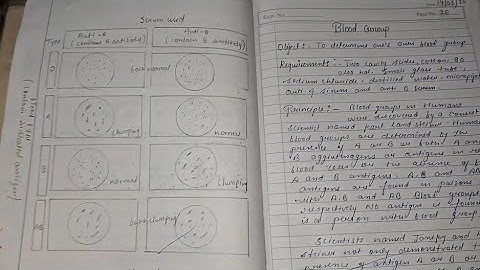 Serum used
Type
Anti-A
(contain A antibody)
Anti-B
(contain B antibody)
O
both normal
A
clumping
normal
B
normal
Clumping
AB
both clumping
Blood type
Date 14/03/
Page No.
Page No. 20
Blood Group
Object:- To determine one's own blood group
Requirements:- Two cavity slides, cotton, 90
alcohol, small glass tube
sodium chloride, distilled water, micropipet
anti A serum and anti B serum.
Principle:- Blood groups in Humans
were discovered by a
scientist named Karl Land steiner. Human
blood groups are determined by the
presence of A or B or both A and
B agglutinogens or antigens in re
blood cells or the absence of b
A and B antigens. A, B and AB
antigens are found in persons
with A, B and AB Blood groups
respectively. No antigen is found
is a person with blood group
Scientists named
steiner not only demonstrated t
presence of antigen A or B or